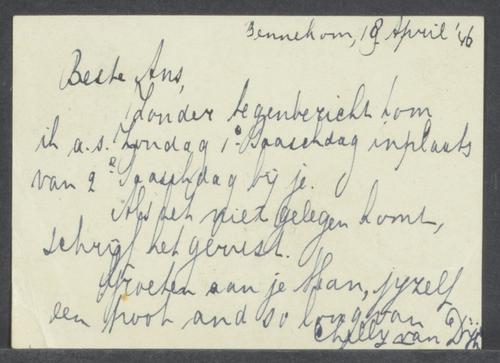 Bennekom, 18 April '46
Beste Ans,
Zonder tegenbericht kom
ik a.s. Zondag 1e Paaschdag inplaats
van 2e Paaschdag bij je.
Als het niet gelegen komt,
schrijf het gerust.
Groeten aan je Man, jijzelf
een poot and so long van
Chelly van Dijk